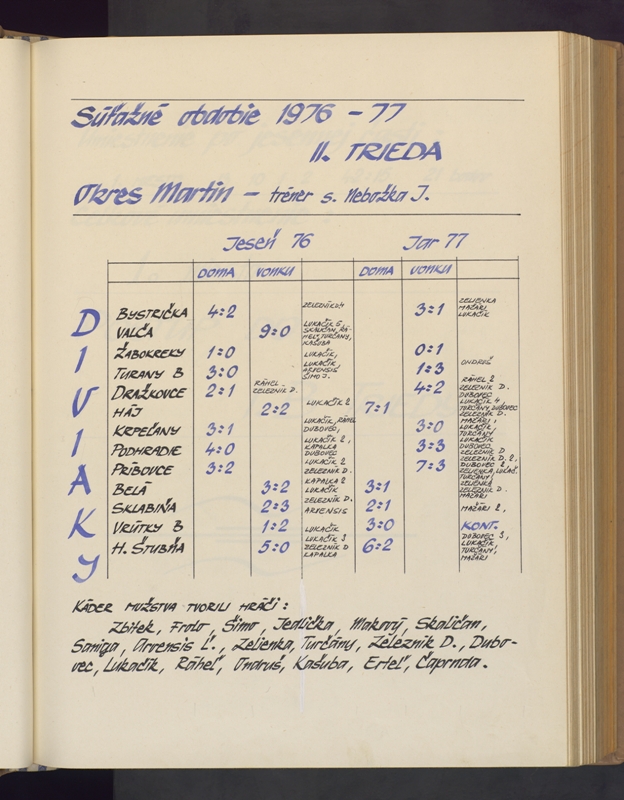 Súťažné obdobie 1976 – 77
II. TRIEDA
Okres Martin – tréner s. Nebožka J.
Jeseň 76 Jar 77
DOMA VONKU DOMA VONKU
DIVIAKY
BYSTRIČKA 4:2 ŽELEZNÍK 4 3:1 ZELIENKA MAŽÁRI LUKAČÍK
VALČA 9:0 LUKAČÍK 5, SKALIČAN, RÁHEĽ, TURČÁNY, KAŠUBA
ŽABOKREKY 1:0 LUKAČÍK, 0:1
TURANY B 3:0 LUKAČÍK ARVENSIS ŠIMO J. 1:3 ONDRUŠ
DRAŽKOVCE 2:1 RÁHEĽ. ŽELEZNÍK D. 4:2 RÁHEĽ 2 ŽELEZNÍK D. DUBOVEC
HÁJ 2:2 LUKAČÍK 2 7:1 LUKAČÍK 4, TURČÁNY, DUBOVEC ŽELEZNÍK D.
KRPEĽANY 3:1 LUKAČÍK, RÁHEĽ DUBOVEC, 3:0 MAŽÁRI, LUKAČÍK, TURČÁNY
PODHRADIE 4:0 LUKAČÍK 2, KAPALKA DUBOVEC 3:3 LUKAČÍK DUBOVEC ŽELEZNÍK D
PRÍBOVCE 3:2 LUKAČÍK 2 ŽELEZNÍK D. 7:3 ŽELEZNÍK D, 2, DUBOVEC 2 ZELIENKA, LUKAČ. TURČÁNY,
BELÁ 3:2 KAPALKA 2 LUKAČÍK 3:1 ZELIENKA ŽELEZNÍK D. MAŽÁRI
SKLABIŇA 2:3 ŽELEZNÍK D. ARVENSIS 2:1 MAŽÁRI 2,
VRÚTKY B 1:2 LUKAČÍK 3:0 KONT.
H. ŠTUBŇA 5:0 LUKAČÍK 3 ŽELEZNÍK D KAPALKA 6:2 DUBOVEC 3, LUKAČÍK, TURČÁNY, MAŽÁRI
KÁDER MUŽSTVA TVORILI HRÁČI:
Zbitek, Frolo Šimo, Jedlička, Makový, Skaličan,
Saniga, Arvensis Ľ., Zelienka, Turčány, Železník D., Dubo-
vec, Lukačík, Ráheľ, Ondruš, Kašuba, Erteľ, Čaprnda.